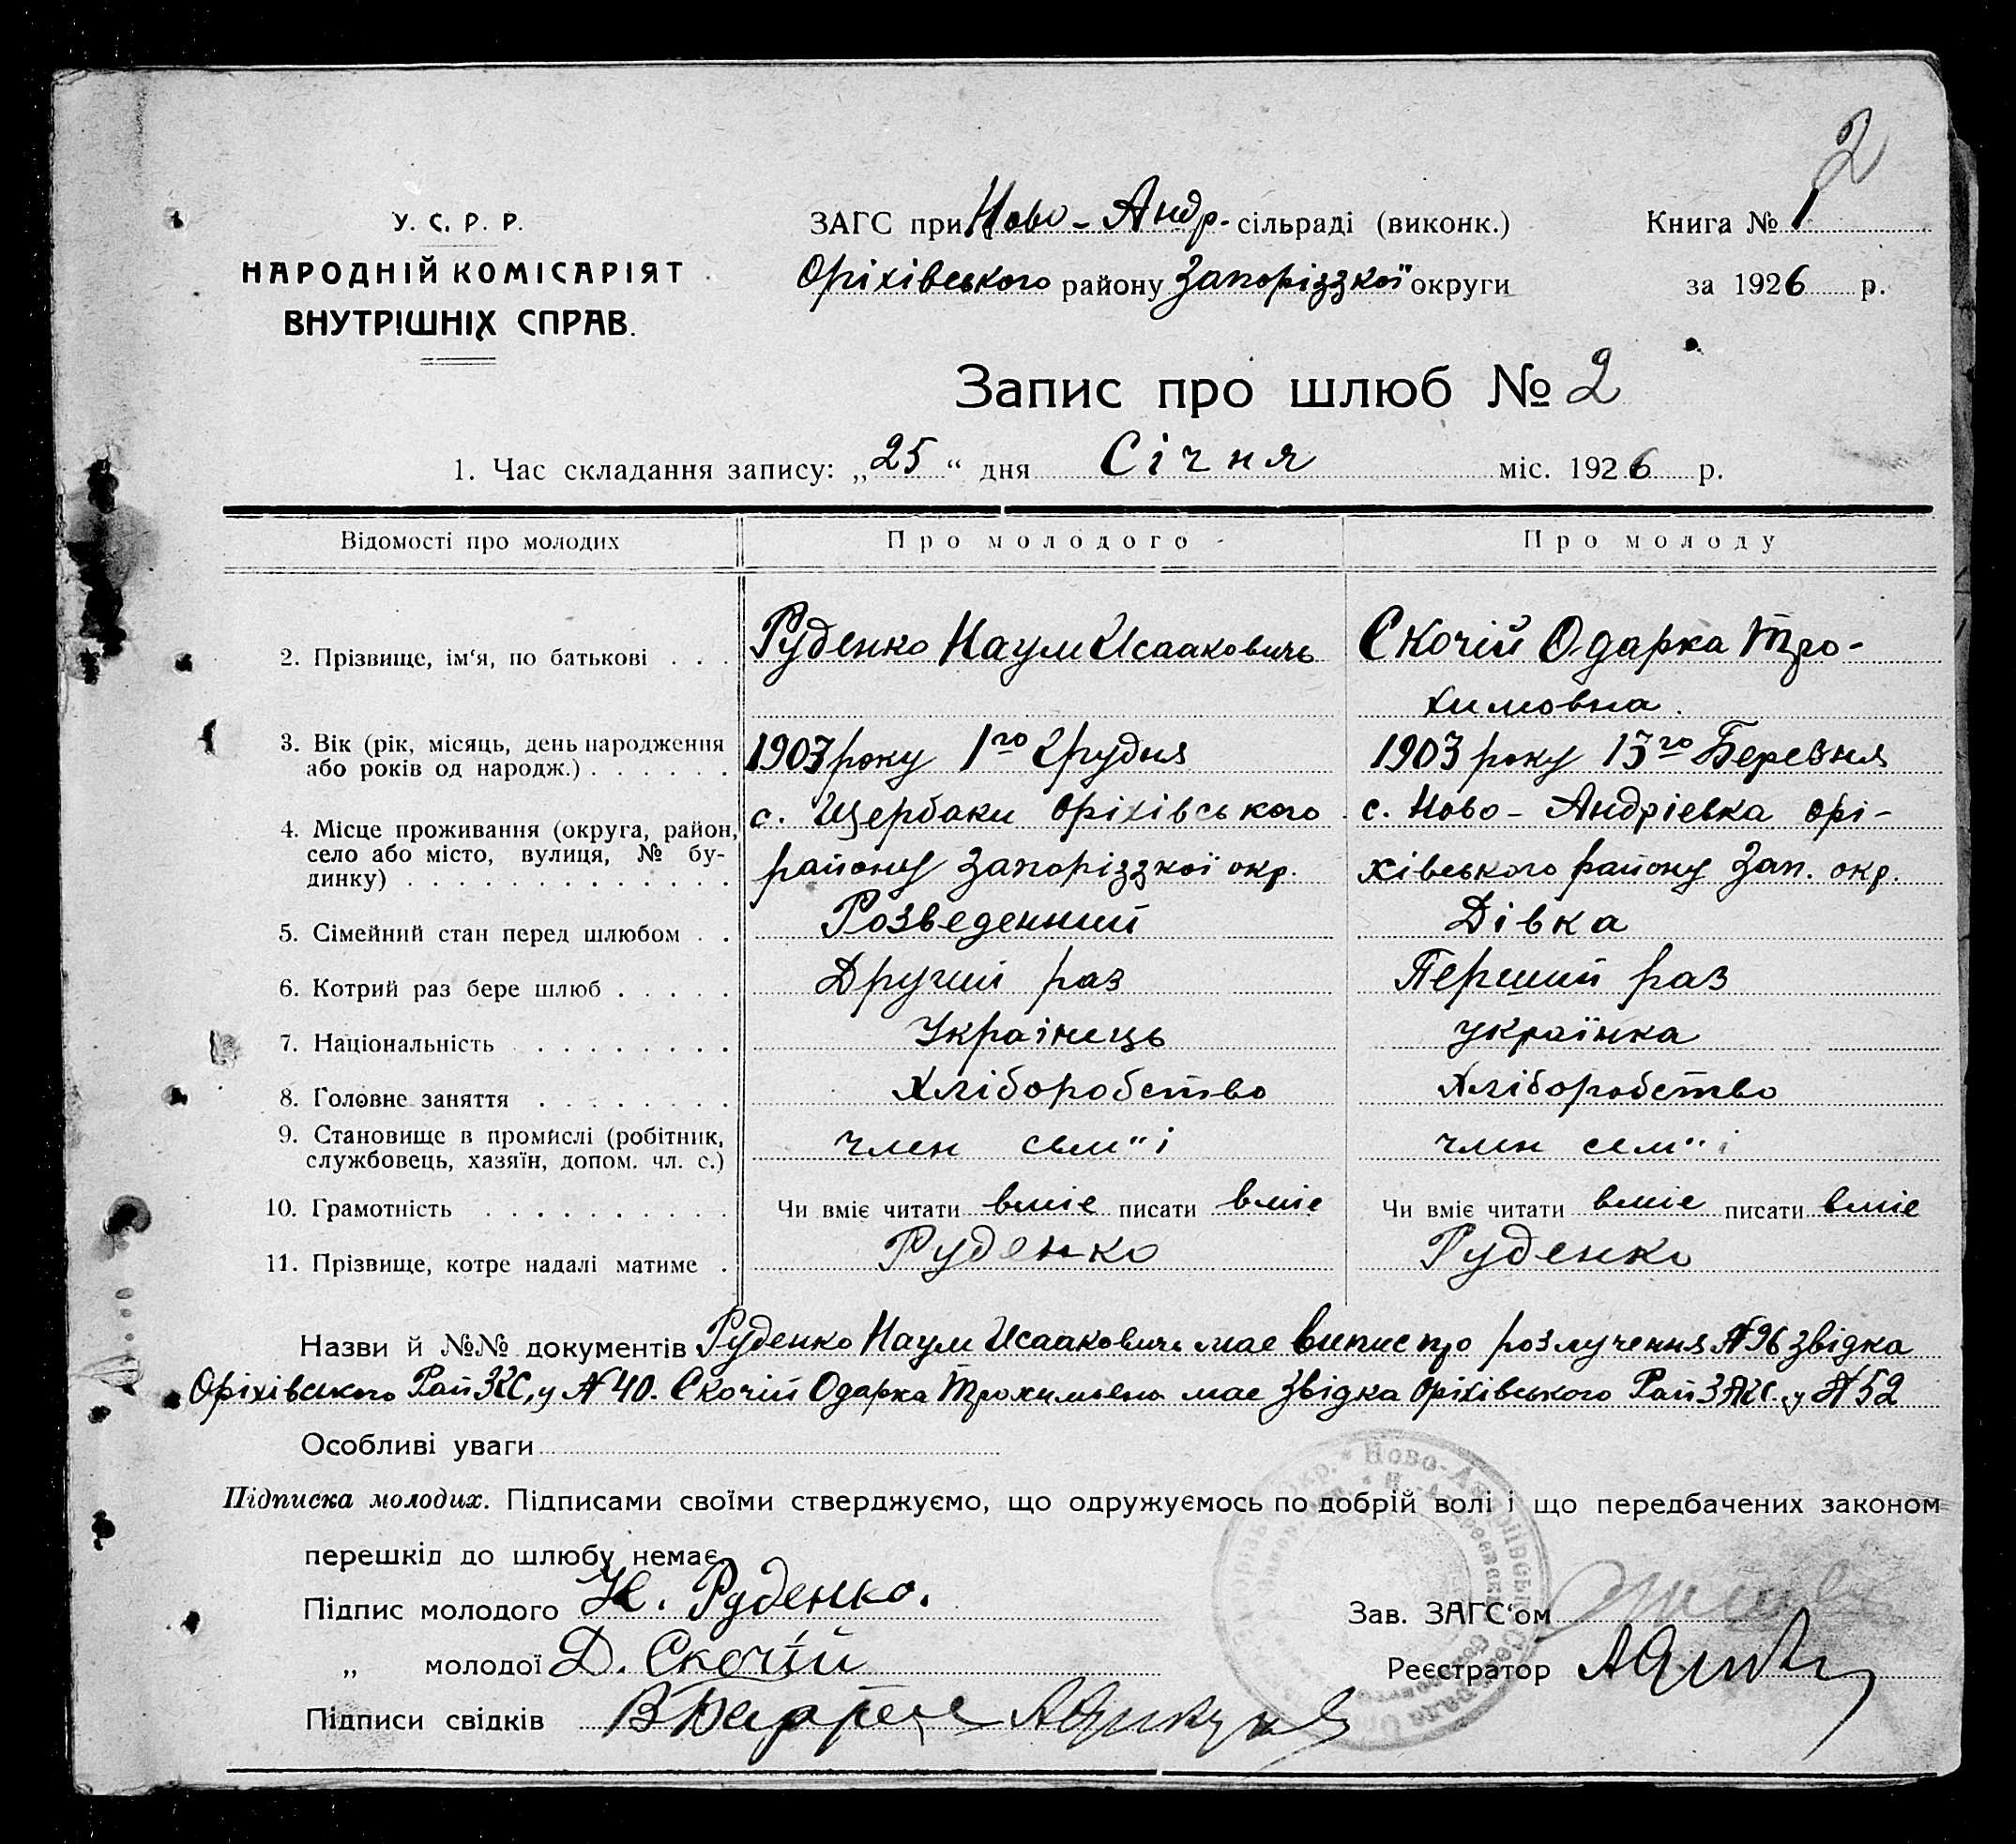 2
У. С. Р. Р.
НАРОДНІЙ КОМІСАРІЯТ
ВНУТРІШНІХ СПРАВ.
ЗАГС при Ново-Андр- сільраді (виконк.)
Оріхівського району Запоріззкої округи
Книга № 1
за 1926 р.
Запис про шлюб № 2
1. Час складання запису: „25“ дня Січня міс. 1926 р.
Відомості про молодих Про молодого Про молоду
2. Прізвище, ім'я, по батькові . . . Руденко Наум Исаакович Скочій Одарка Тро-
химовна.
3. Вік (рік, місяць, день народження 1903 року 1го Грудня 1903 року 13го Березня
або років од народж.) . . . . . .
4. Місце проживання (округа, район, с. Щербаки Оріхівського с. Ново-Андріевка Орі-
село або місто, вулиця, № бу- району Запоріззкої окр. хівського району Зап. окр.
динку) . . . . . . . . . . . . .
5. Сімейний стан перед шлюбом . . Розведенний Дівка
6. Котрий раз бере шлюб . . . . . Другий раз Перший раз
7. Національність . . . . . . . . . Українець українка
8. Головне заняття . . . . . . . . Хліборобство Хліборобство
9. Становище в промислі (робітник, член семʺі член семʺі
службовець, хазяїн, допом. чл. с.)
10. Грамотність . . . . . . . . . . Чи вміє читати вміе писати вміе Чи вміє читати вміе писати вміе
11. Прізвище, котре надалі матиме . Руденко Руденко
Назви й №№ документів Руденко Наум Исаакович мае випис про розлучення № 96 звідка
Оріхівського у № 40. Скочій Одарка Трохимовна мае звідка Оріхівського у № 52
Особливі уваги
Підписка молодих. Підписами своїми стверджуємо, що одружуємось по добрій волі і що передбачених законом
перешкід до шлюбу немає
Підпис молодого Н. Руденко.
„ молодої Д. Скочій
Підписи свідків
Зав. ЗАГС'ом
Реєстратор